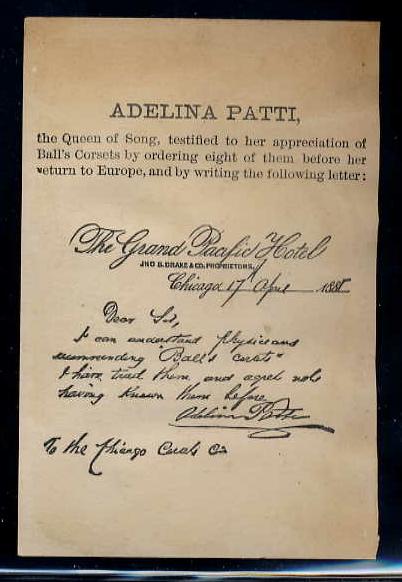 ADELINA PATTI,
the Queen of Song, testified to her appreciation of
Ball's Corsets by ordering eight of them before her
return to Europe, and by writing the following letter:
The Grand Pacific Hotel
JNO B. DRAKE & CO. PROPRIETORS.
Chicago 17 April 188
Dear Sir,
I can understand physicians
"Ball's Corsets"
I have tried them, and regret not
having known them before
Adelina Patti
To the Chicago Corset Co